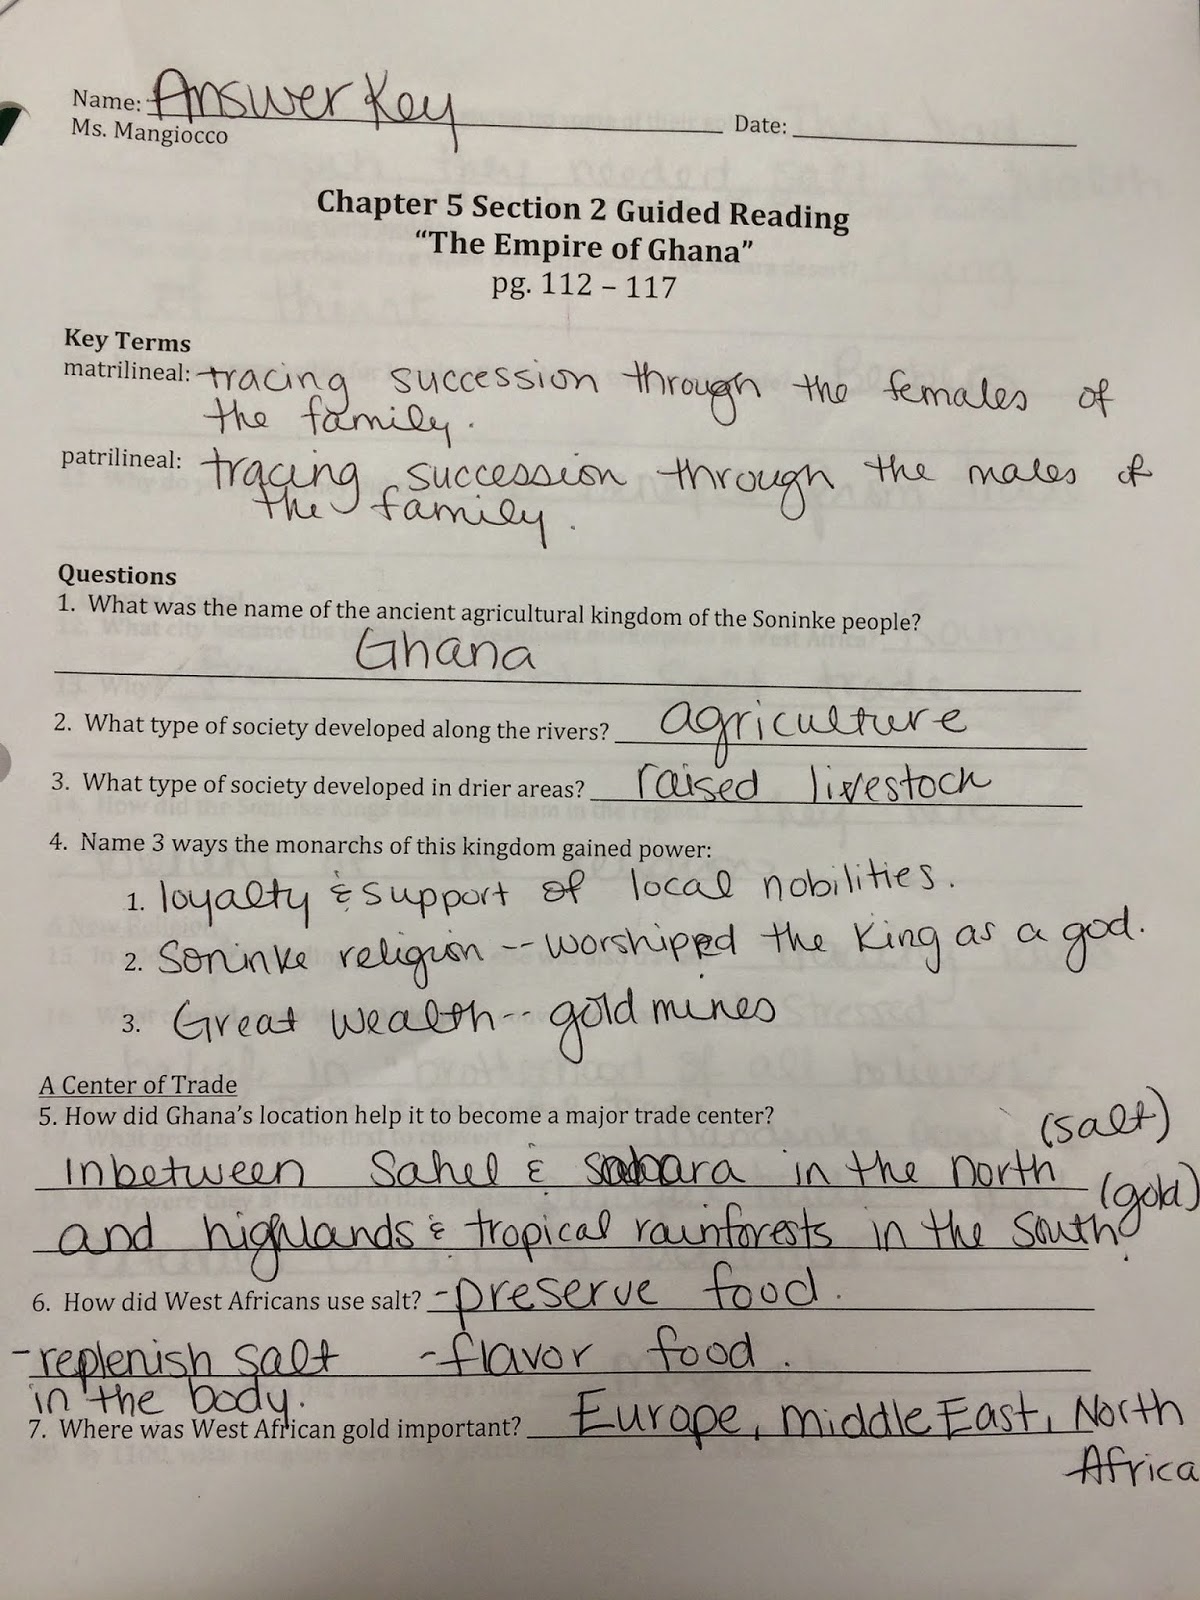 Name: Answer Key Date:
Ms. Mangiocco
Chapter 5 Section 2 Guided Reading
“The Empire of Ghana”
pg. 112 – 117
Key Terms
matrilineal: tracing succession through the females of
the family.
patrilineal: tracing succession through the males of
the family.
Questions
1. What was the name of the ancient agricultural kingdom of the Soninke people?
Ghana
2. What type of society developed along the rivers? agriculture
3. What type of society developed in drier areas? raised livestock
4. Name 3 ways the monarchs of this kingdom gained power:
1. loyalty & support of local nobilities.
2. Soninke religion -- worshipped the King as a god.
3. Great wealth -- gold mines
A Center of Trade
5. How did Ghana’s location help it to become a major trade center?
(salt)
inbetween Sahel & Sahara in the north
(gold)
and highlands & tropical rainforests in the South.
6. How did West Africans use salt? -preserve food.
-replenish salt -flavor food.
in the body.
7. Where was West African gold important? Europe, Middle East, North
Africa